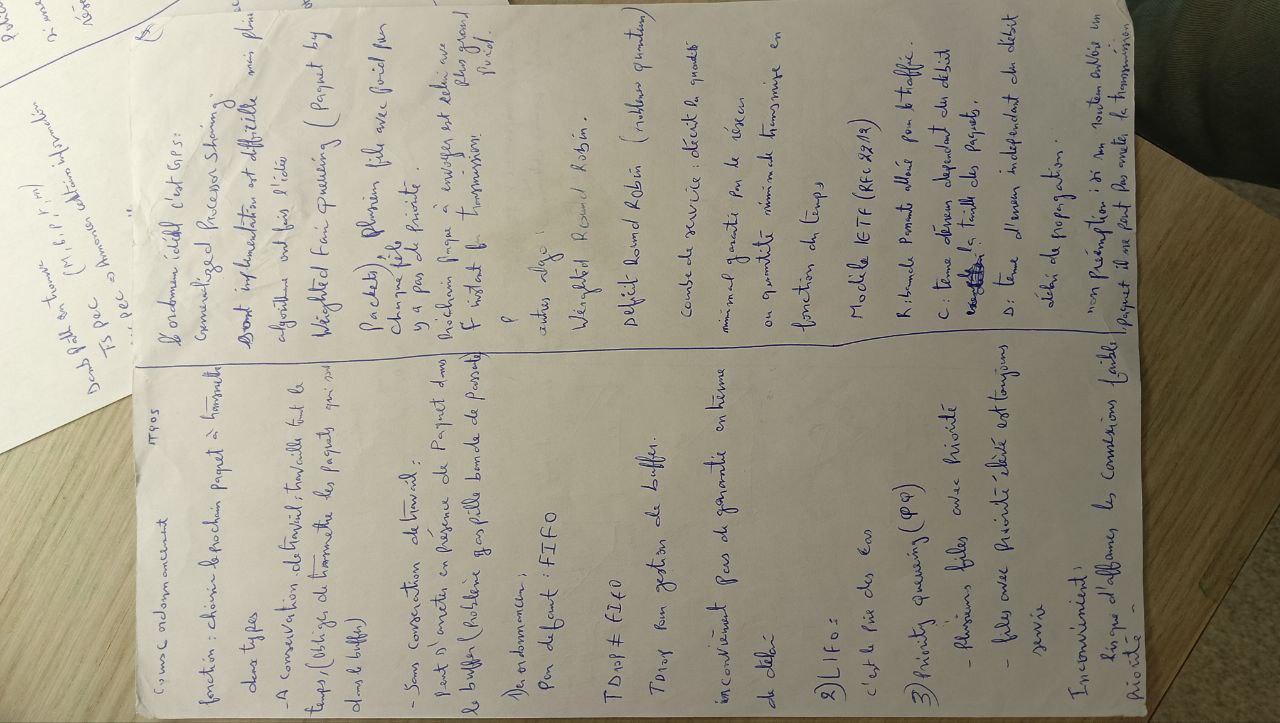 Cours ordonnancement
ITQOS
fonction : choisir le prochain paquet à transmettre
deux types
- A conservation de travail, travaille tout le
temps, (obligés de transmettre les paquets qui sont
dans le buffer)
- Sans conservation de travail :
peut s'arreter en présence de Paquet dans
le buffer (Problème gaspille bande de passante)
1) ordonnancer :
Par defaut : FIFO
TDrop ≠ FIFO
TDrop Pour gestion de buffer.
inconvénient pas de garantie en terme
de délai
2) LIFO :
c'est le Pire des cas
3) Priority queueing (PQ)
- Plusieurs files avec Priorité
- files avec Priorité élevé est toujours
servie
Inconvénient :
Risque d'affamer les connexions faible
Priorité -
L'ordonneur idéal c'est GPS :
Generalized Processor Sharing
Dont implementation est difficile mais plusieurs
algorithme ont fait l'idée
Weighted Fair queueing (Paquet by
Packet) plusieurs file avec poid par
chaque file
y a pas de Priorité.
Prochain paque à envoyer est celui avec
plus grand poid.
F instant fin transmission
P
autres algo :
Weighted Round Robin.
Deficit Round Robin (notion quantum)
Courbe de service : décrit la quantité
minimal garantie par le réseau
ou quantité minimale transmise en
fonction du temps
Modèle IETF (RFC 2212)
R : bande Passante alloué pour le traffic.
C : terme d'erreur dependant du debit
la taille des paquets.
D : terme d'erreur independant du debit
délai de propagation.
non préemption : si un routeur
paquet il ne peut pas arreter la transmission
Dans Path on trouve
(M, b, P, r, m)
TSPEC